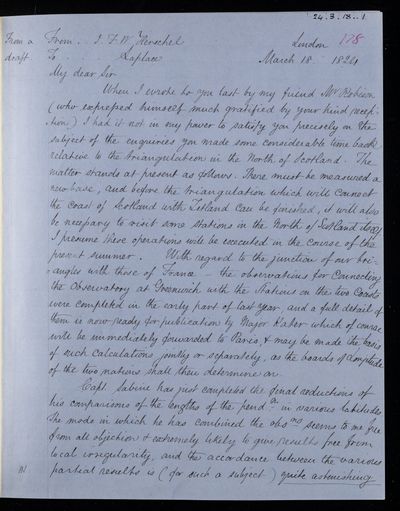 24.3.18..1
178
From a
draft
From .. J. F. W. Herschel
London
To Laplace
March 18 1824
My dear Sir
When I wrote to you last by my friend Mr Robison
(who expressed himself much gratified by your kind recep-
-tion) I had it not in my power to satisfy you precisely on the
subject of the enquiries you made some considerable time back
relative to the triangulation in the North of Scotland. The
matter stands at present as follows. There must be measured a
new base, and before the triangulation which will connect
the coast of Scotland with Zetland can be finished, it will also
be necessary to visit some stations in the North of Scotland
I presume these operations will be executed in the course of the
present summer. With regard to the junction of our tri-
-angles with those of France – the observations for connecting
the Observatory at Greenwich with the Stations on the two Coasts
were completed in the early part of last year, and a full detail of
them is now ready for publication by Major Kater which of course
will be immediately forwarded to Paris, & may be made the basis
of such calculations jointly or separately, as the boards of Longitude
of the two nations shall then determine on
Capt. Sabine has just completed the final reductions of
his comparisons of the lengths of the pend.m in various latitudes
The mode in which he has combined the obs.ns seems to me free
from all objection & extremely likely to give results free from
local irregularity, and the accordance between the various
partial results is (for such a subject) quite astonishing